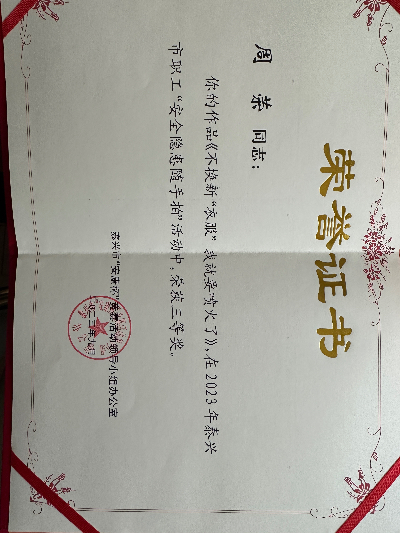 荣誉证书
周 荣 同志：
你的作品《不换新“衣服”，我就要喷火了》，在2023年泰兴
市职工“安全隐患随手拍”活动中，荣获三等奖。
泰兴市“安康杯”竞赛活动领导小组办公室
二〇二三年九月